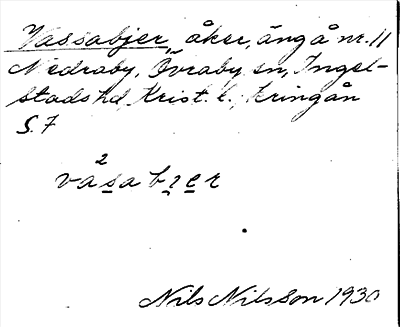 Vassabjer, åker, äng å nr. 11
Nedraby, Övraby sn, Ingel-
stads hd, Krist. l.; kringån
S. 7
2
vasabɪer
Nils Nilsson 1930